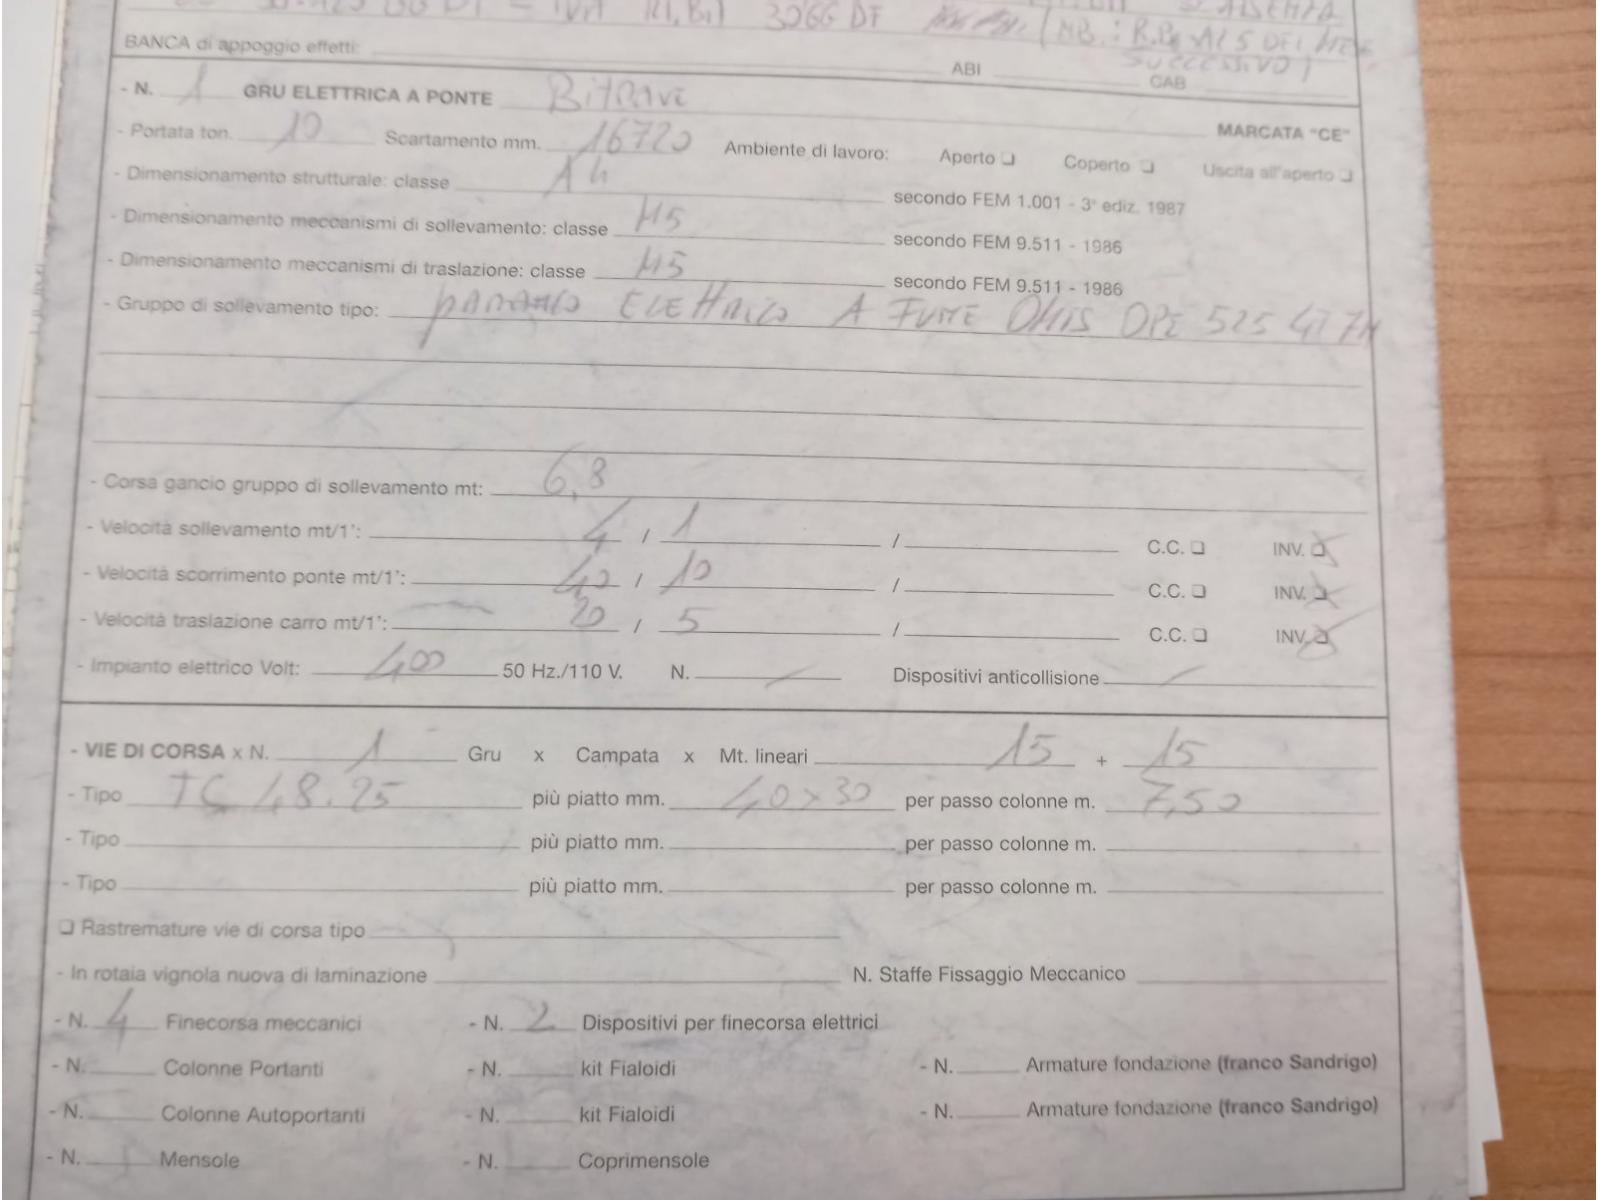 3066 DF NB.: R.B. AL 5 DEL MESE
SUCCESSIVO)
BANCA di appoggio effetti: ABI CAB
- N. 1 GRU ELETTRICA A PONTE BITRAVE MARCATA "CE"
- Portata ton. 10 Scartamento mm. 16720 Ambiente di lavoro: Aperto ❏ Coperto ❏ Uscita all'aperto ❏
- Dimensionamento strutturale: classe A4 secondo FEM 1.001 - 3ª ediz. 1987
- Dimensionamento meccanismi di sollevamento: classe M5 secondo FEM 9.511 - 1986
- Dimensionamento meccanismi di traslazione: classe M5 secondo FEM 9.511 - 1986
- Gruppo di sollevamento tipo: PARANCO ELETTRICO A FUNE OMIS OPE 525
- Corsa gancio gruppo di sollevamento mt: 6,8
- Velocità sollevamento mt/1': 4 / 1 / C.C. ❏ INV. ❏
- Velocità scorrimento ponte mt/1': 40 / 10 / C.C. ❏ INV. ❏
- Velocità traslazione carro mt/1': 20 / 5 / C.C. ❏ INV. ❏
- Impianto elettrico Volt: 400 50 Hz./110 V. N. Dispositivi anticollisione
- VIE DI CORSA x N. 1 Gru x Campata x Mt. lineari 15 + 15
- Tipo TC 48.25 più piatto mm. 40x30 per passo colonne m. 7,50
- Tipo più piatto mm. per passo colonne m.
- Tipo più piatto mm. per passo colonne m.
❏ Rastremature vie di corsa tipo
- In rotaia vignola nuova di laminazione N. Staffe Fissaggio Meccanico
- N. 4 Finecorsa meccanici - N. 2 Dispositivi per finecorsa elettrici
- N. Colonne Portanti - N. kit Fialoidi - N. Armature fondazione (franco Sandrigo)
- N. Colonne Autoportanti - N. kit Fialoidi - N. Armature fondazione (franco Sandrigo)
- N. Mensole - N. Coprimensole